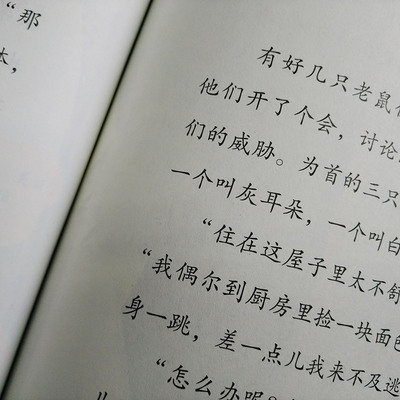 “那
体，
有好几只老鼠
他们开了个会，讨论
们的威胁。为首的三只
一个叫灰耳朵，一个叫白
“住在这屋子里太不舒
“我偶尔到厨房里捡一块面包
身一跳，差一点儿我来不及逃
“怎么办呢？